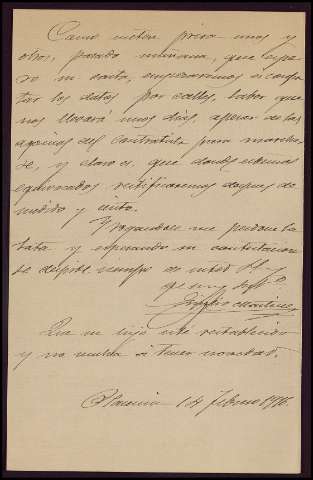 Como                  para unos y
otros, pasado mañana, que espe-
ro su carta, empezaremos a confron-
tar los datos por calles, labor que
nos llevará unos días, apesar de las
       del Contratista para marchar-
se, y claro es, que donde estemos
equivocados rectificaremos despues de
medido y visto.
Rogandole me perdone la
lata y esperando su contestacion
se despide            de usted
que
Martinez
Que su hijo esté restablecido
y no vuelva á tener novedad.
Plasencia 14 Febrero 1916.